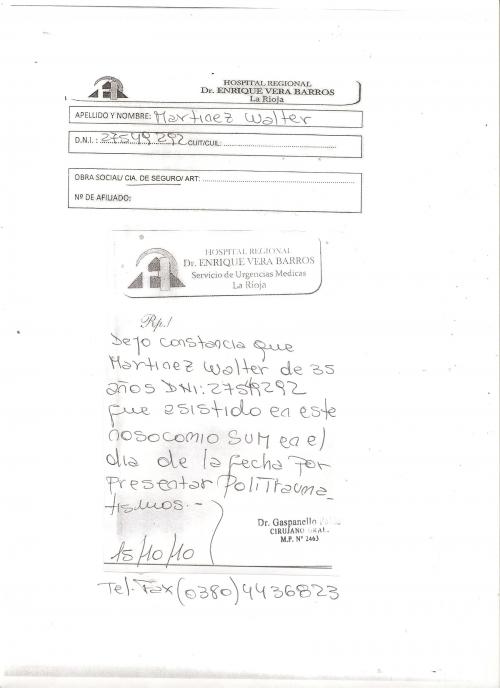 HOSPITAL REGIONAL
Dr. ENRIQUE VERA BARROS
La Rioja
APELLIDO Y NOMBRE: Martinez Walter
D.N.I. : 27549292 CUIT/CUIL:
OBRA SOCIAL/ CIA. DE SEGURO/ ART:
Nº DE AFILIADO:
HOSPITAL REGIONAL
Dr. ENRIQUE VERA BARROS
Servicio de Urgencias Medicas
La Rioja
Rp./
Dejo constancia que
Martinez Walter de 35
años DNI: 27549292
fue asistido en este
nosocomio SUM en el
dia de la fecha por
presentar Politrauma_
tismos.-
Dr. Gaspanello
CIRUJANO GRAL.
M.P. Nº 2463
15/10/10
Tel. Fax (0380) 4436823